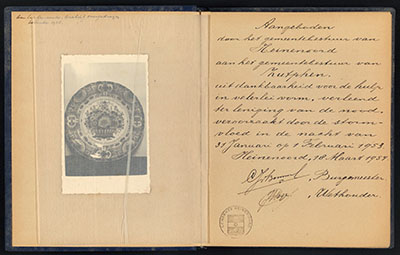 Aangeboden
door het gemeentebestuur van
Heinenoord
aan het gemeentebestuur van
Zutphen.
uit dankbaarheid voor de hulp
in velerlei vorm, verleend
ter leniging van de nood,
veroorzaakt door de storm-
vloed in de nacht van
31 Januari op 1 Februari 1953.
Heinenoord, 18 Maart 1954.
Burgemeester
Wethouder.